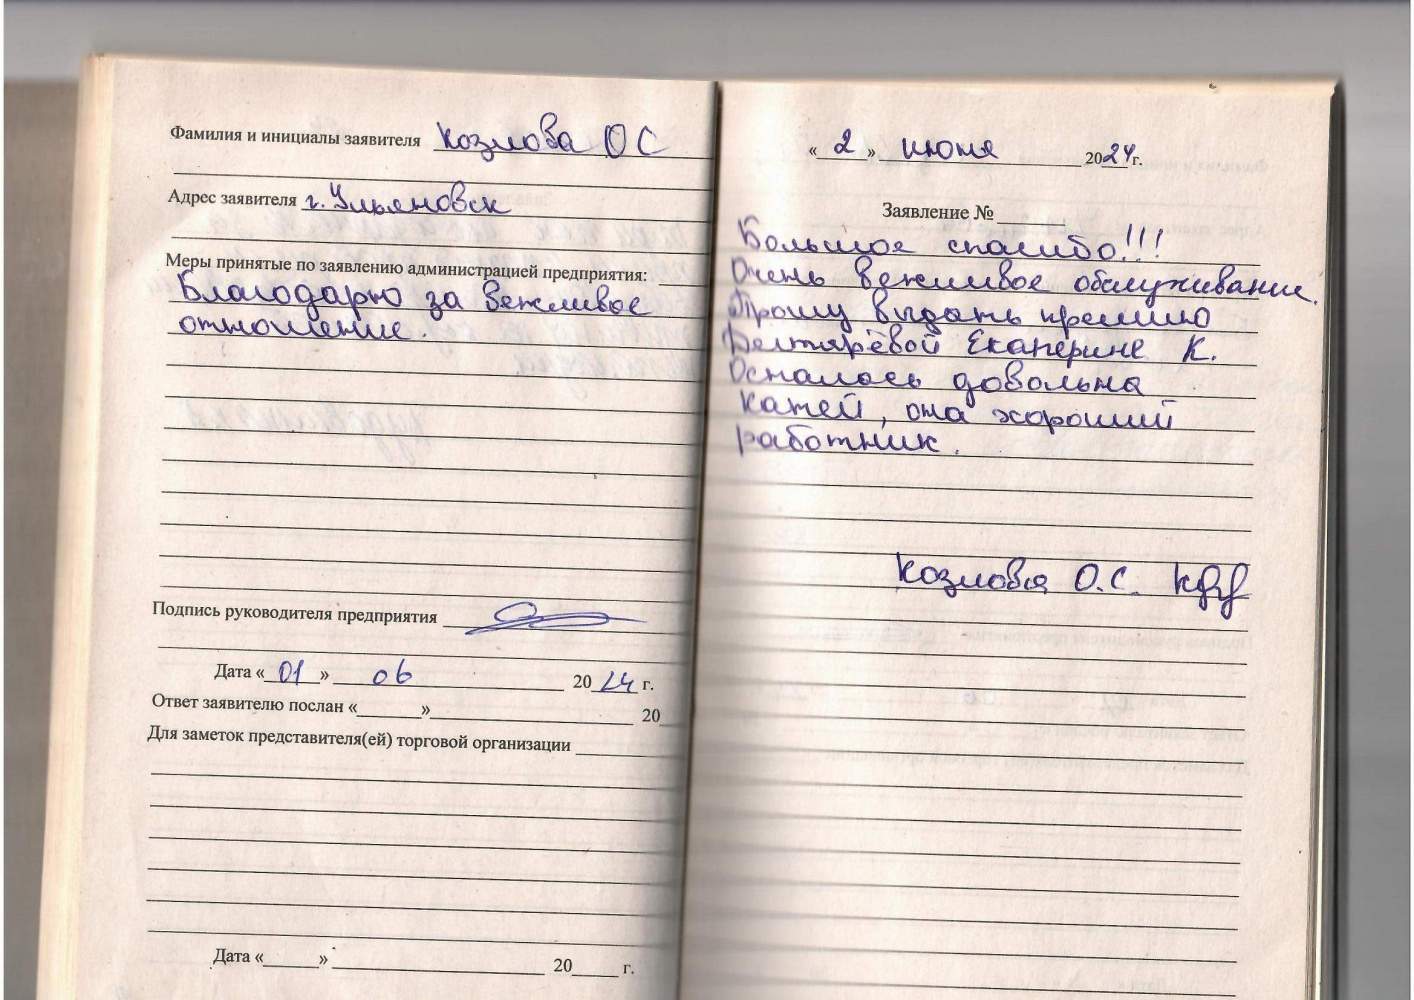 Фамилия и инициалы заявителя Козлова О С
Адрес заявителя г. Ульяновск
Меры принятые по заявлению администрацией предприятия:
Благодарю за вежливое
отношение.
Подпись руководителя предприятия
Дата «01» 06 2024 г.
Ответ заявителю послан «______»____________ 20__
Для заметок представителя(ей) торговой организации
Дата «______» ____________ 20____ г.
«2» июня 2024 г.
Заявление №
Большое спасибо!!!
Очень вежливое обслуживание.
Прошу выдать премию
Екатерине К.
Осталась довольна
Катей, она хороший
работник.
Козлова О.С.